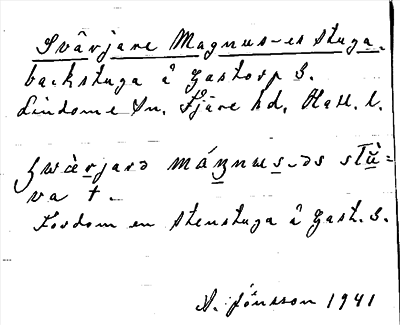 Svärjare Magnus-es stuga.
backstuga å Gastorp S.
Lindome sn. Fjäre hd. Hall. l.
swä̀rjarə máꞬnus-əs stŭ̀-
va †.
Fordom en stenstuga å Gast. S.
A. Jönsson 1941